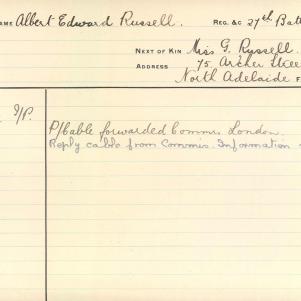 NAME Albert Edward Russell. REG. &C 27th Batt
NEXT OF KIN Miss G. Russell.
ADDRESS 75 Archer Stree
North Adelaide
P/Cable forwarded Commis. London.
Reply cable from Commis. Information